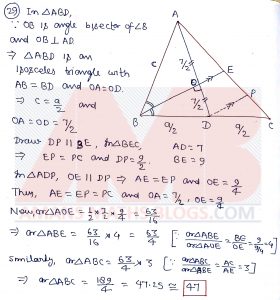 29) In △ABD,
∵ OB is angle bisector of ∠B
and OB⊥AD.
⇒ △ABD is an
isosceles triangle with
AB = BD and OA = OD.
⇒ c = a/2 and
OA = OD = 7/2
Draw DP ∥ BE, In △BEC,
⇒ EP = PC and DP = 9/2
AD = 7
BE = 9
In △ADP, OE ∥ DP ⇒ AE = EP and OE = 9/4
Thus, AE = EP = PC and OA = 7/2, OE = 9/4
Now, ar△AOE = 1/2 × 7/2 × 9/4 = 63/16
⇒ ar△ABE = 63/16 × 4 = 63/4 [∵ ar△ABE/ar△AOE = BE/OE = 9/9/4 = 4]
Similarly, ar△ABC = 63/4 × 3 [∵ ar△ABC/ar△ABE = AC/AE = 3]
⇒ ar△ABC = 189/4 = 47.25 ≅ 47
A
c
7/2
E
O
7/2
P
B
a/2
D
a/2
C